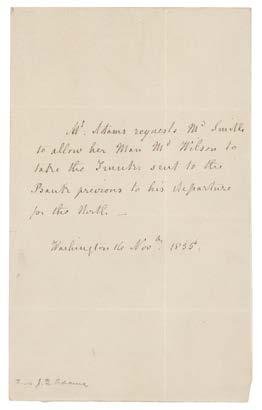 Mrs. Adams requests Mr Smith
to allow her Man Mr Wilson to
take the Trunks sent to the
Bank previous to his departure
for the North. —
Washington 16 Novbr. 1835.
Mrs J. Q. Adams